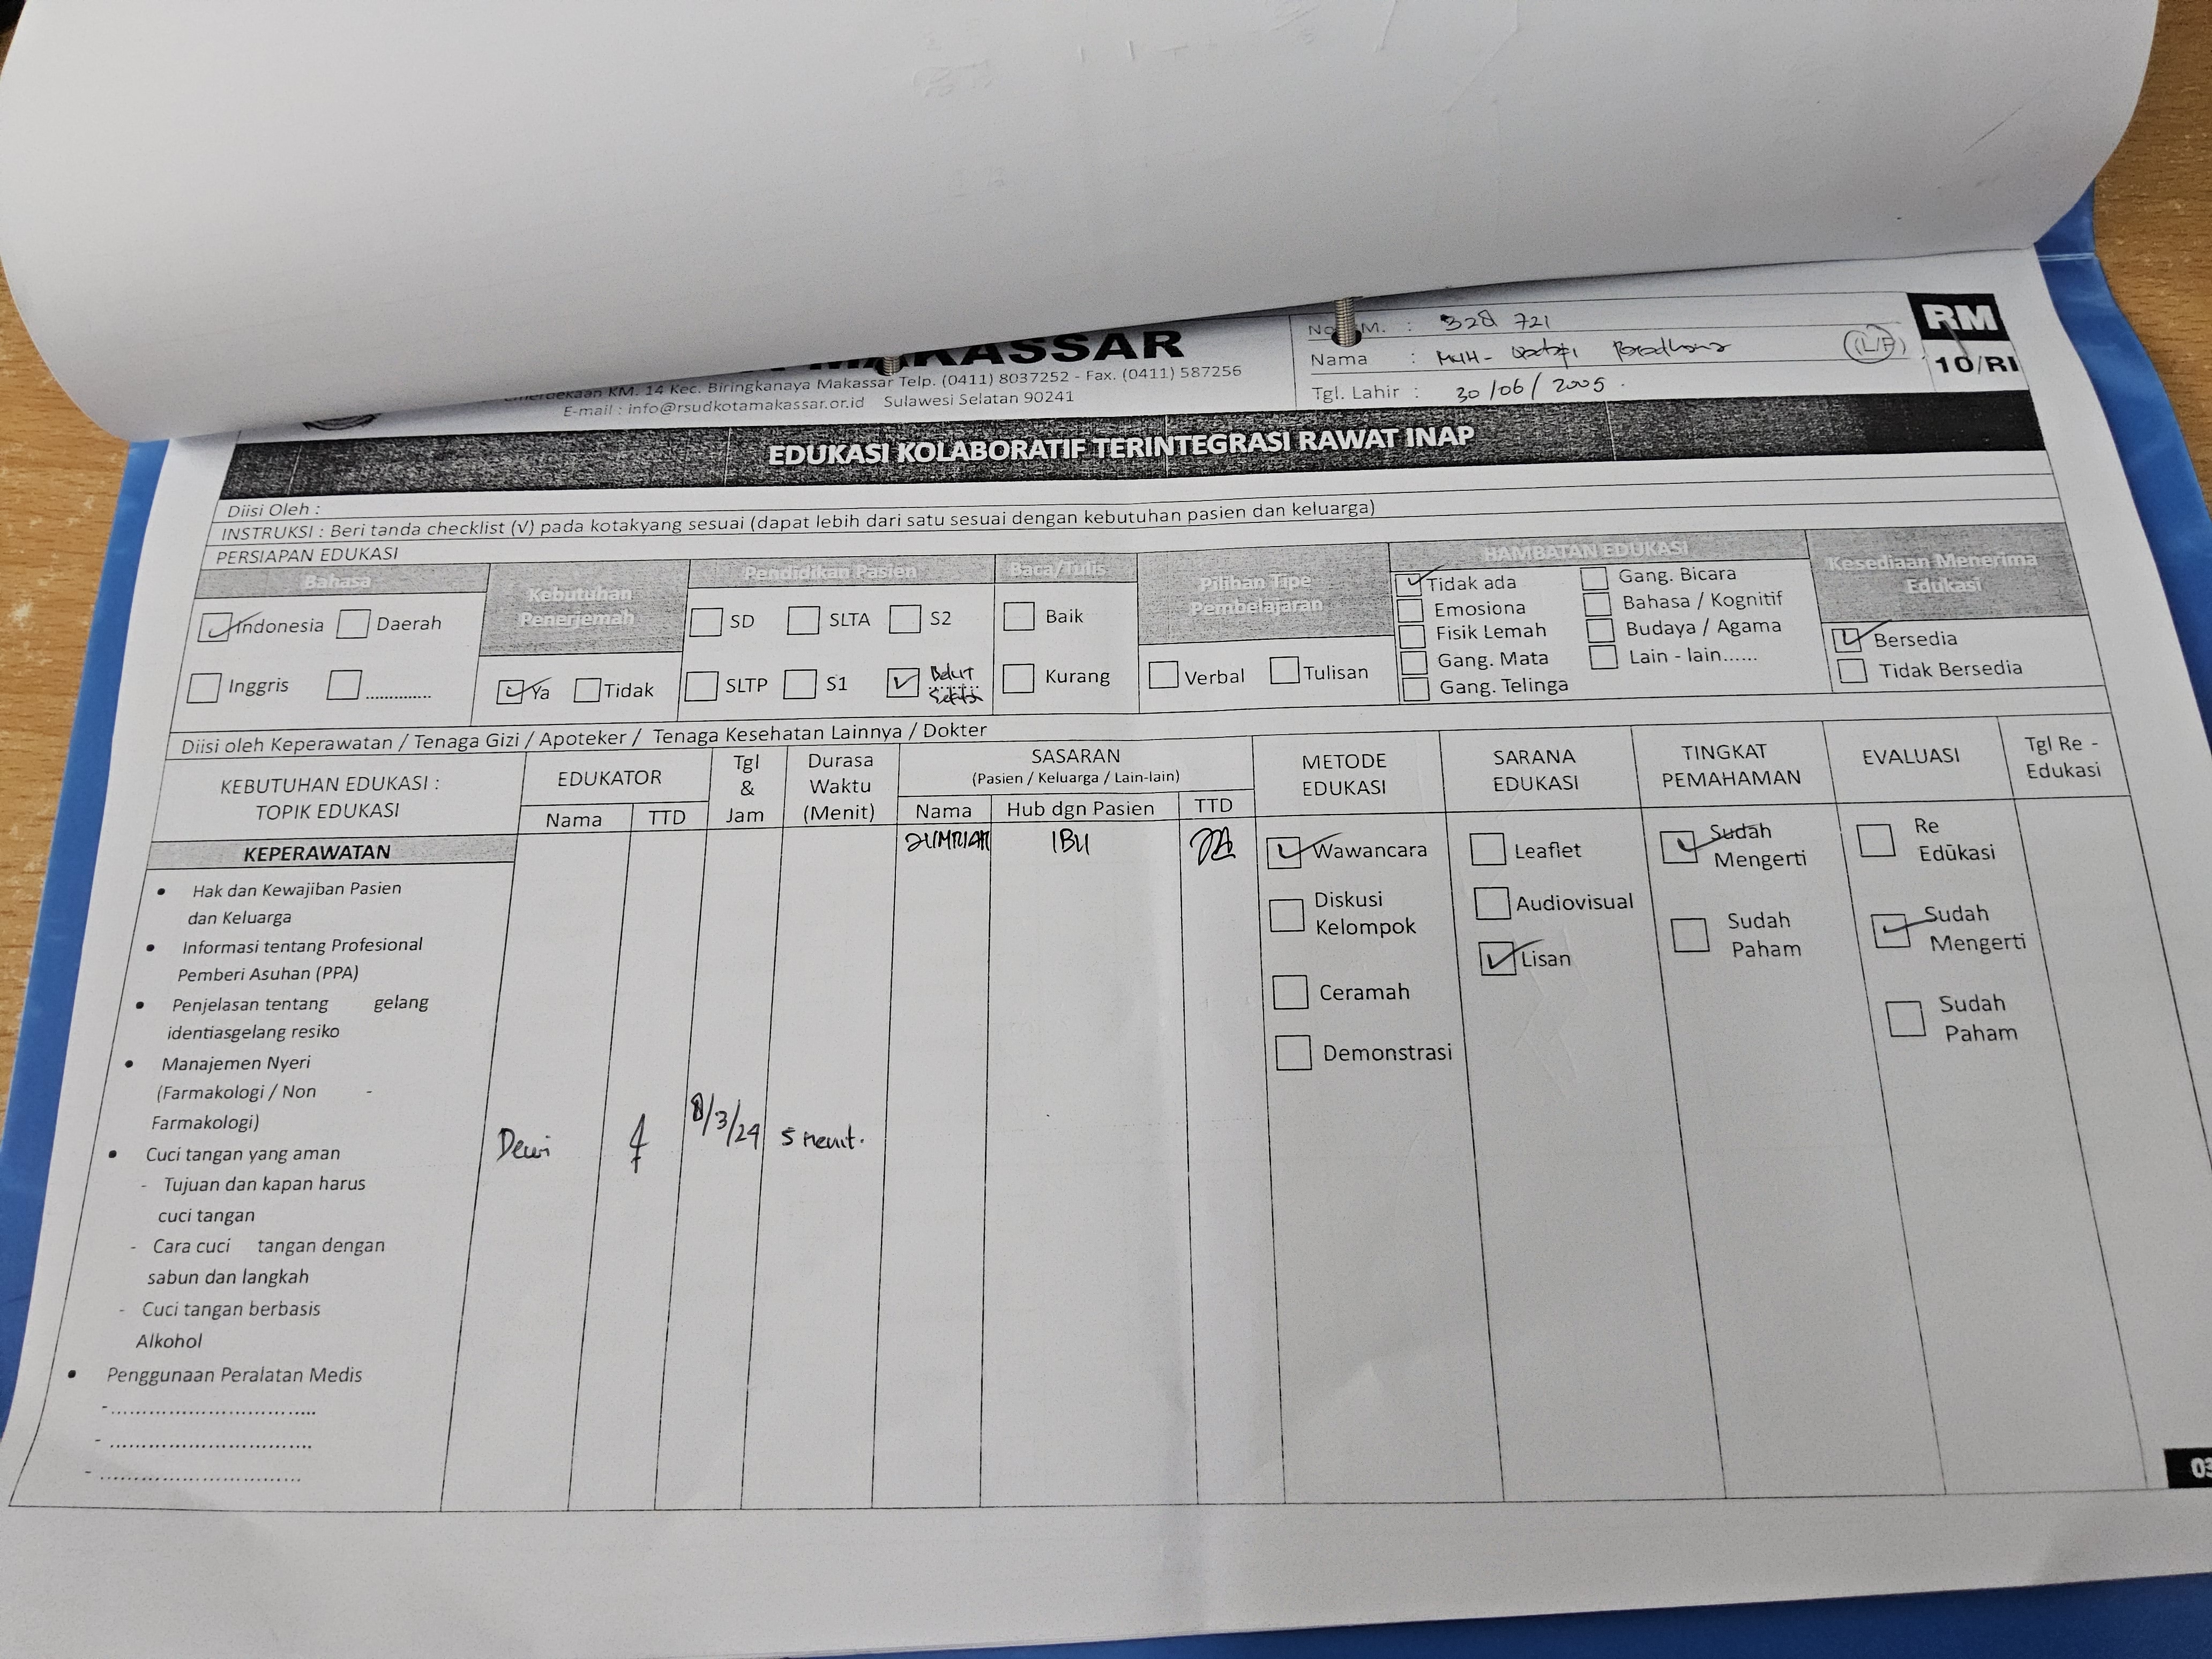 MAKASSAR
KM. 14 Kec. Biringkanaya Makassar Telp. (0411) 8037252 - Fax. (0411) 587256
E-mail : info@rsudkotamakassar.or.id Sulawesi Selatan 90241
No. M. : 328 721
Nama : MUH- (L/P)
Tgl. Lahir : 30/06/2005.
RM
10/RI
EDUKASI KOLABORATIF TERINTEGRASI RAWAT INAP
Diisi Oleh :
INSTRUKSI : Beri tanda checklist (√) pada kotakyang sesuai (dapat lebih dari satu sesuai dengan kebutuhan pasien dan keluarga)
PERSIAPAN EDUKASI
Bahasa
Indonesia Daerah
Inggris ..............
Kebutuhan
Penerjemah
Ya Tidak
Pendidikan Pasien
SD SLTA S2
SLTP S1 Belum
Sekolah
Baca/Tulis
Baik
Kurang
Pilihan Tipe
Pembelajaran
Verbal Tulisan
HAMBATAN EDUKASI
Tidak ada Gang. Bicara
Emosiona Bahasa / Kognitif
Fisik Lemah Budaya / Agama
Gang. Mata Lain - lain......
Gang. Telinga
Kesediaan Menerima
Edukasi
Bersedia
Tidak Bersedia
Diisi oleh Keperawatan / Tenaga Gizi / Apoteker / Tenaga Kesehatan Lainnya / Dokter
KEBUTUHAN EDUKASI :
TOPIK EDUKASI
EDUKATOR
Nama TTD
Tgl
&
Jam
Durasa
Waktu
(Menit)
SASARAN
(Pasien / Keluarga / Lain-lain)
Nama Hub dgn Pasien TTD
METODE
EDUKASI
SARANA
EDUKASI
TINGKAT
PEMAHAMAN
EVALUASI
Tgl Re -
Edukasi
KEPERAWATAN
• Hak dan Kewajiban Pasien
dan Keluarga
• Informasi tentang Profesional
Pemberi Asuhan (PPA)
• Penjelasan tentang gelang
identiasgelang resiko
• Manajemen Nyeri
(Farmakologi / Non -
Farmakologi)
• Cuci tangan yang aman
- Tujuan dan kapan harus
cuci tangan
- Cara cuci tangan dengan
sabun dan langkah
- Cuci tangan berbasis
Alkohol
• Penggunaan Peralatan Medis
-................................
-................................
-................................
Dewi
8/3/24
5 menit.
IBU
Wawancara
Diskusi
Kelompok
Ceramah
Demonstrasi
Leaflet
Audiovisual
Lisan
Sudah
Mengerti
Sudah
Paham
Re
Edukasi
Sudah
Mengerti
Sudah
Paham
03